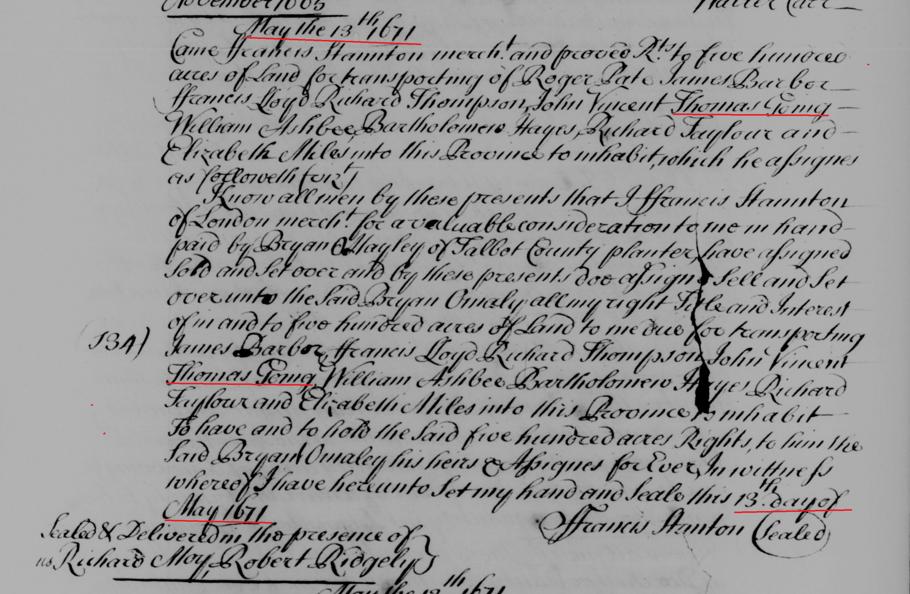 November 1665
Walter Carr
May the 13th 1671
Came ffrancis Stannton mercht. and proved Rts. to five hundred
acres of Land for transporting of Roger Pate James Barber
ffrancis Lloyd Richard Thompson, John Vincent Thomas Going
William Ashbee, Bartholomew Hayes, Richard Taylour and
Elizabeth Miles into this Province to inhabit, which he assignes
as followeth (vizt)
Know all men by these presents that I ffrancis Stannton
of London mercht. for a valuable consideration to me in hand
paid by Bryan Omayley of Talbot County planter have assigned
Sold and Set over and by these presents doe assigne Sell and Set
over unto the Said Bryan Omaly all my right Title and Interest
of in and to five hundred acres of Land to me due for transporting
(134)
James Barber, ffrancis Lloyd Richard Thompson, John Vincent
Thomas Going, William Ashbee Bartholomew Hayes Richard
Taylour and Elizabeth Miles into this Province to inhabit
To have and to hold the Said five hundred acres Rights, to him the
Said Bryan Omaley his heirs & Assignes for Ever, In wittness
whereof I have hereunto Set my hand and Seale this 13th. day of
May 1671
ffrancis Stanton (Sealed)
Sealed & Delivered in the presence of
us. Richard Moy, Robert Ridgely
May the 13th 1671